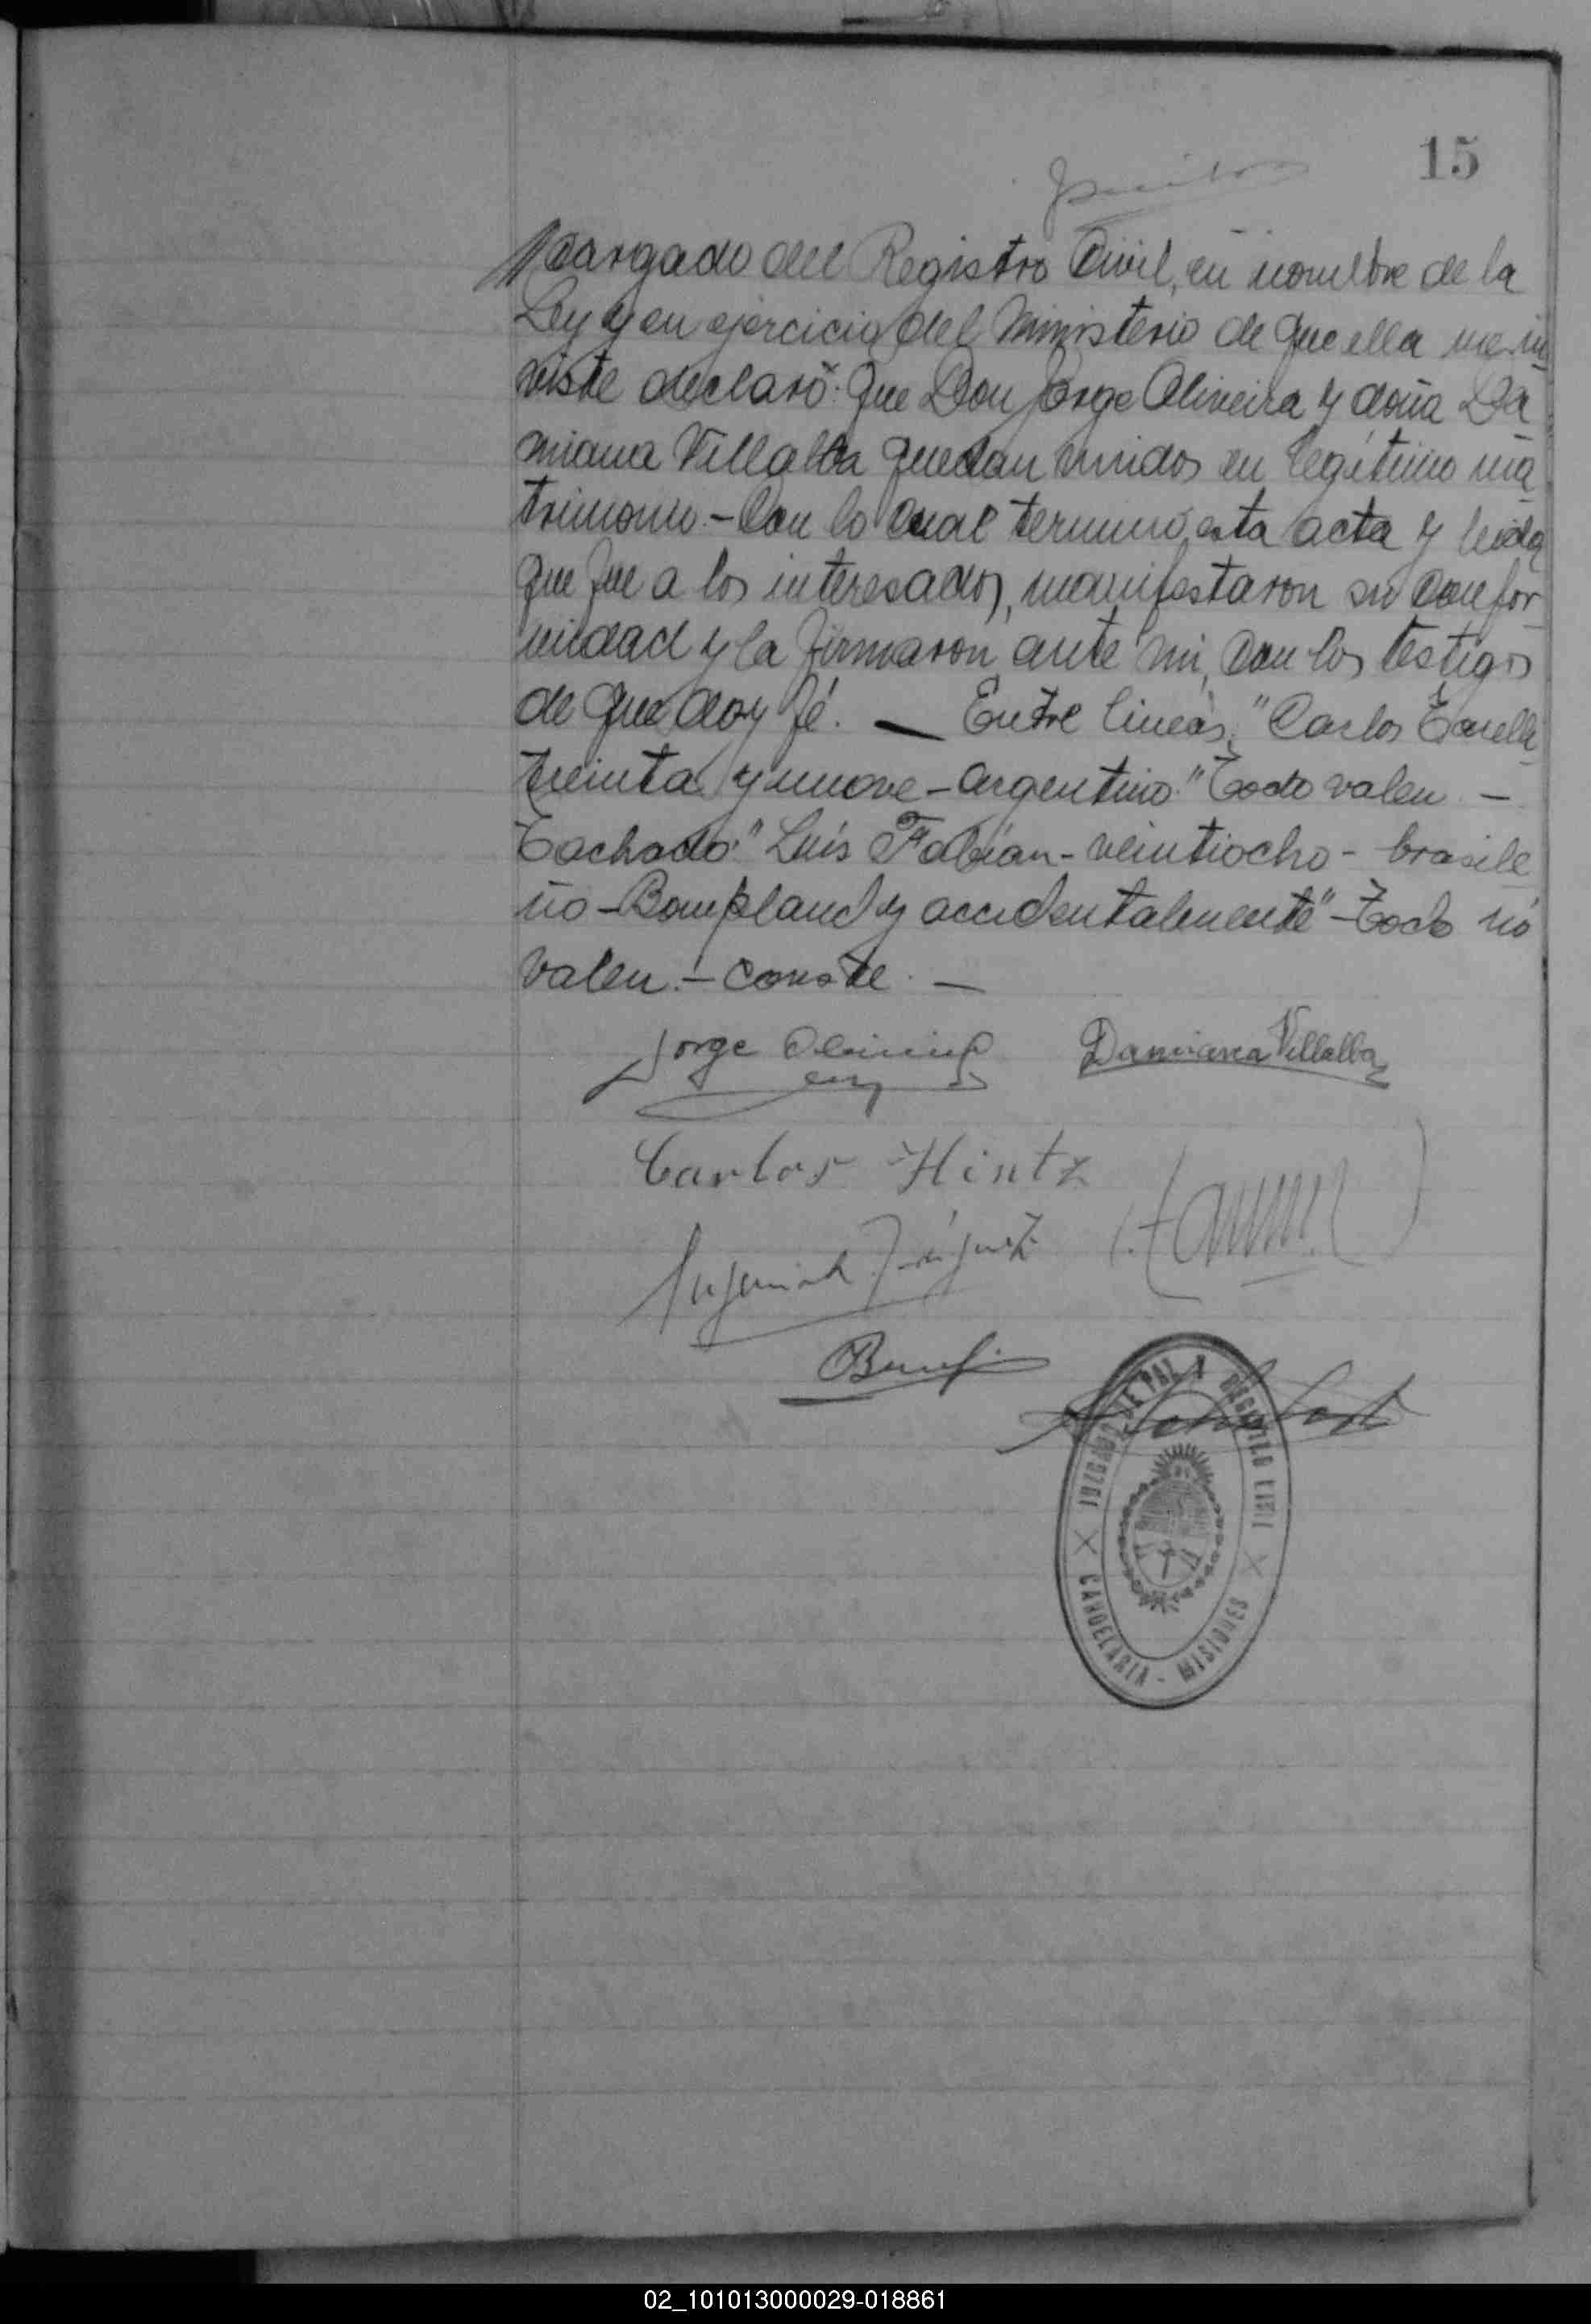 15
cargado del Registro Civil, en nombre de la
Ley y en ejercicio del Ministerio de que ella me in
viste declaró: Que Don Jorge Oliveira y doña Da
miana Villalba quedan unidos en legítimo ma
trimonio.- Con lo cual terminó esta acta y leida
que fue a los interesados, manifestaron su confor
midad y la firmaron ante mi, con los testigos
de que doy fé. — Entre lineas: "Carlos
treinta y nueve - argentino." Todo valen. -
Tachado: "Luis Fabian - veintiocho - brasile
ño - Bompland y accidentalmente" - Todo no
valen. - Conste. -
Jorge Damiana Villalba
Carlos Hintz
JUZGADO DE PAZ Y REGISTRO CIVIL
CANDELARIA - MISIONES
02_101013000029-018861